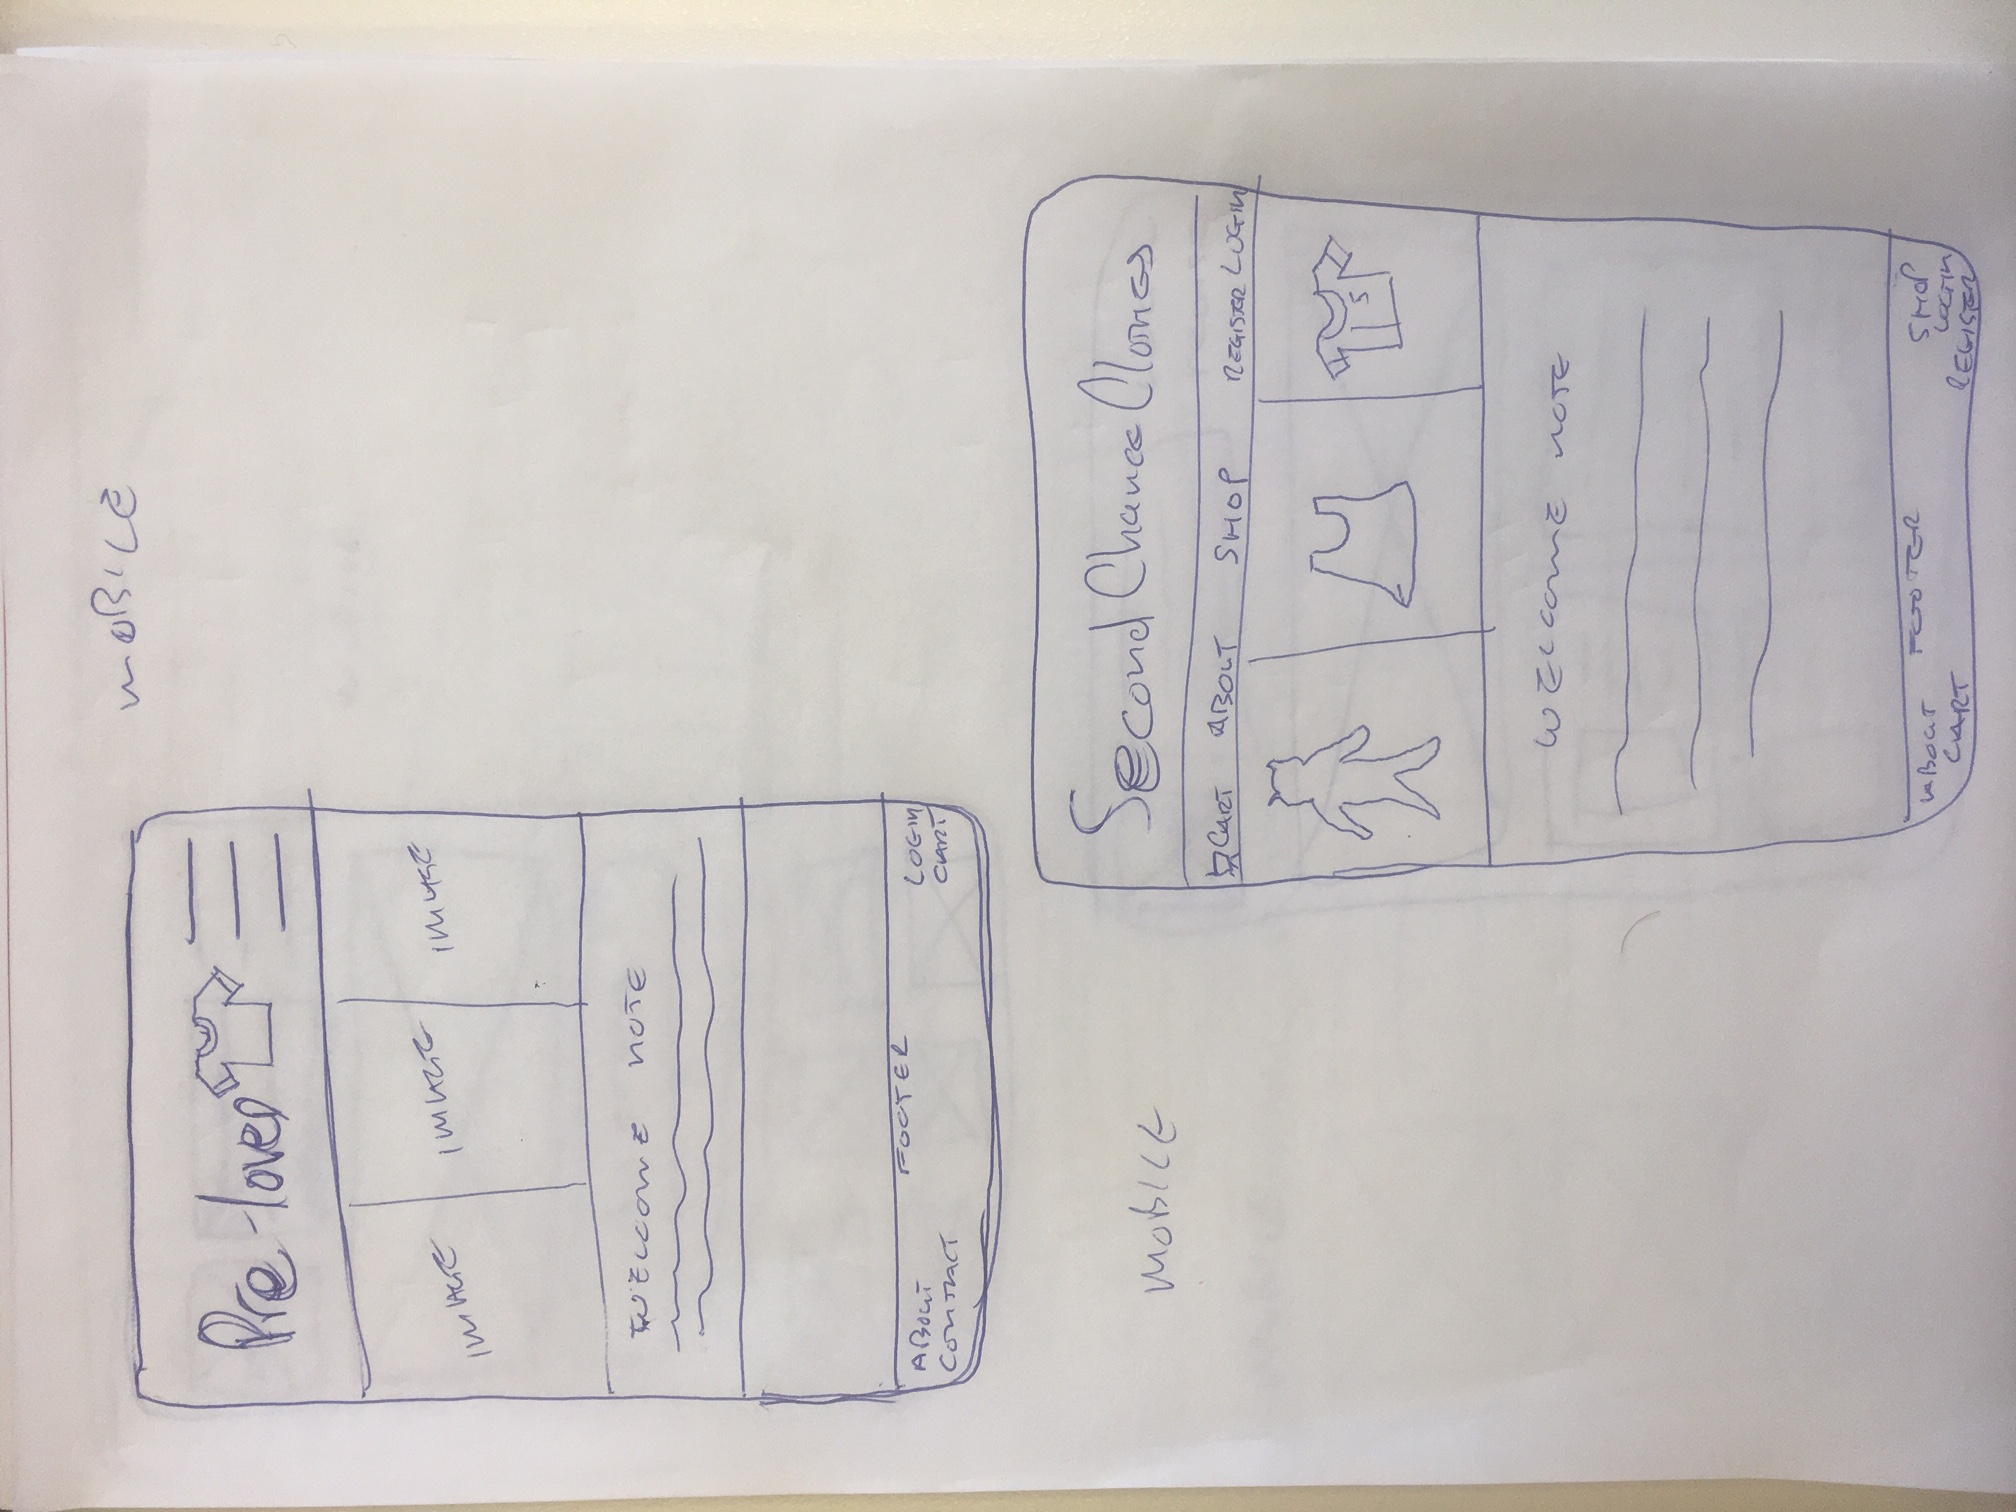 MOBILE
Pre-loved
IMAGE IMAGE IMAGE
WELCOME NOTE
FOOTER
ABOUT LOGIN
CONTACT CART
MOBILE
Second Chance Clothes
CART ABOUT SHOP REGISTER LOGIN
S
WELCOME NOTE
ABOUT FOOTER SHOP
LOGIN
CART REGISTER